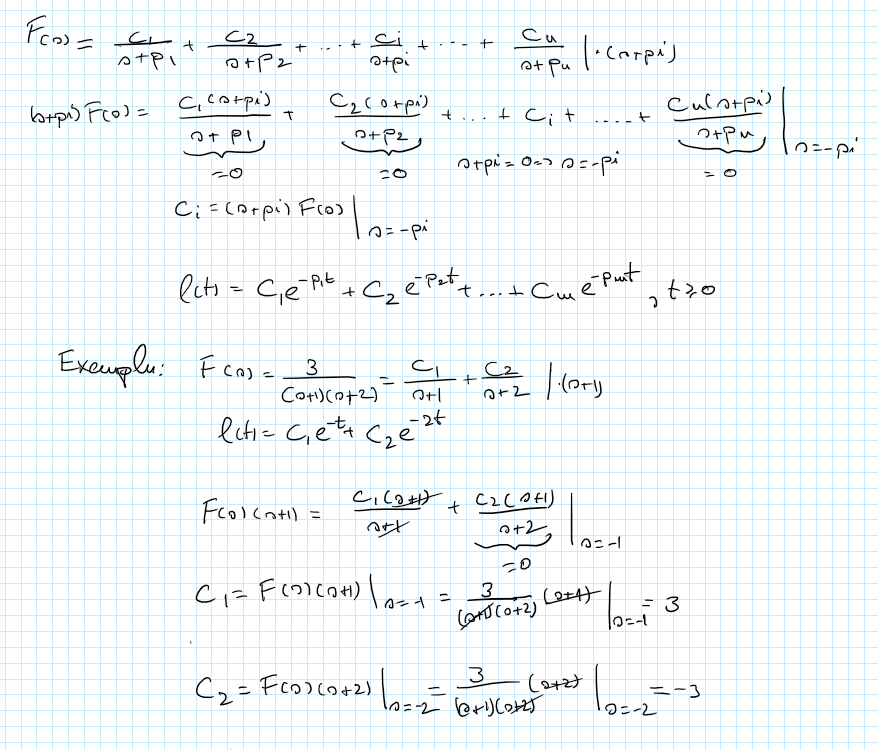 F(s) = C1/(s+p1) + C2/(s+p2) + ... + Ci/(s+pi) + ... + Cn/(s+pn) | ·(s+pi)
(s+pi) F(s) = C1(s+pi)/(s+p1) + C2(s+pi)/(s+p2) + ... + Ci + .... + Cn(s+pi)/(s+pn) | s=-pi
=0 =0 s+pi=0 => s=-pi =0
Ci = (s+pi) F(s) | s=-pi
f(t) = C1e^-p1t + C2e^-p2t + ... + Cne^-pnt, t≥0
Exemplu: F(s) = 3/((s+1)(s+2)) = C1/(s+1) + C2/(s+2) | ·(s+1)
f(t) = C1e^-t + C2e^-2t
F(s)(s+1) = C1(s+1)/(s+1) + C2(s+1)/(s+2) | s=-1
=0
C1 = F(s)(s+1) | s=-1 = 3/((s+1)(s+2)) (s+1) | s=-1 = 3
C2 = F(s)(s+2) | s=-2 = 3/((s+1)(s+2)) (s+2) | s=-2 = -3